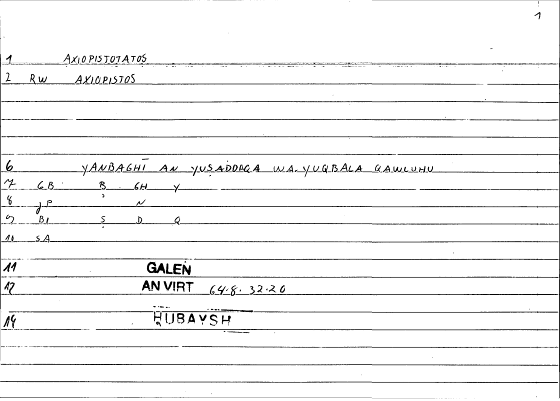 1
1 AXIOPISTOTATOS
2 RW AXIOPISTOS
6 YANBAGHĪ AN YUSADDAQA WA-YUQBALA QAWLUHU
7 GB B GH Y
8 JP ʾ N
9 BI Ṣ D Q
10 SA
11 GALEN
12 AN VIRT 64.8. 32.20
14 ḤUBAYSH